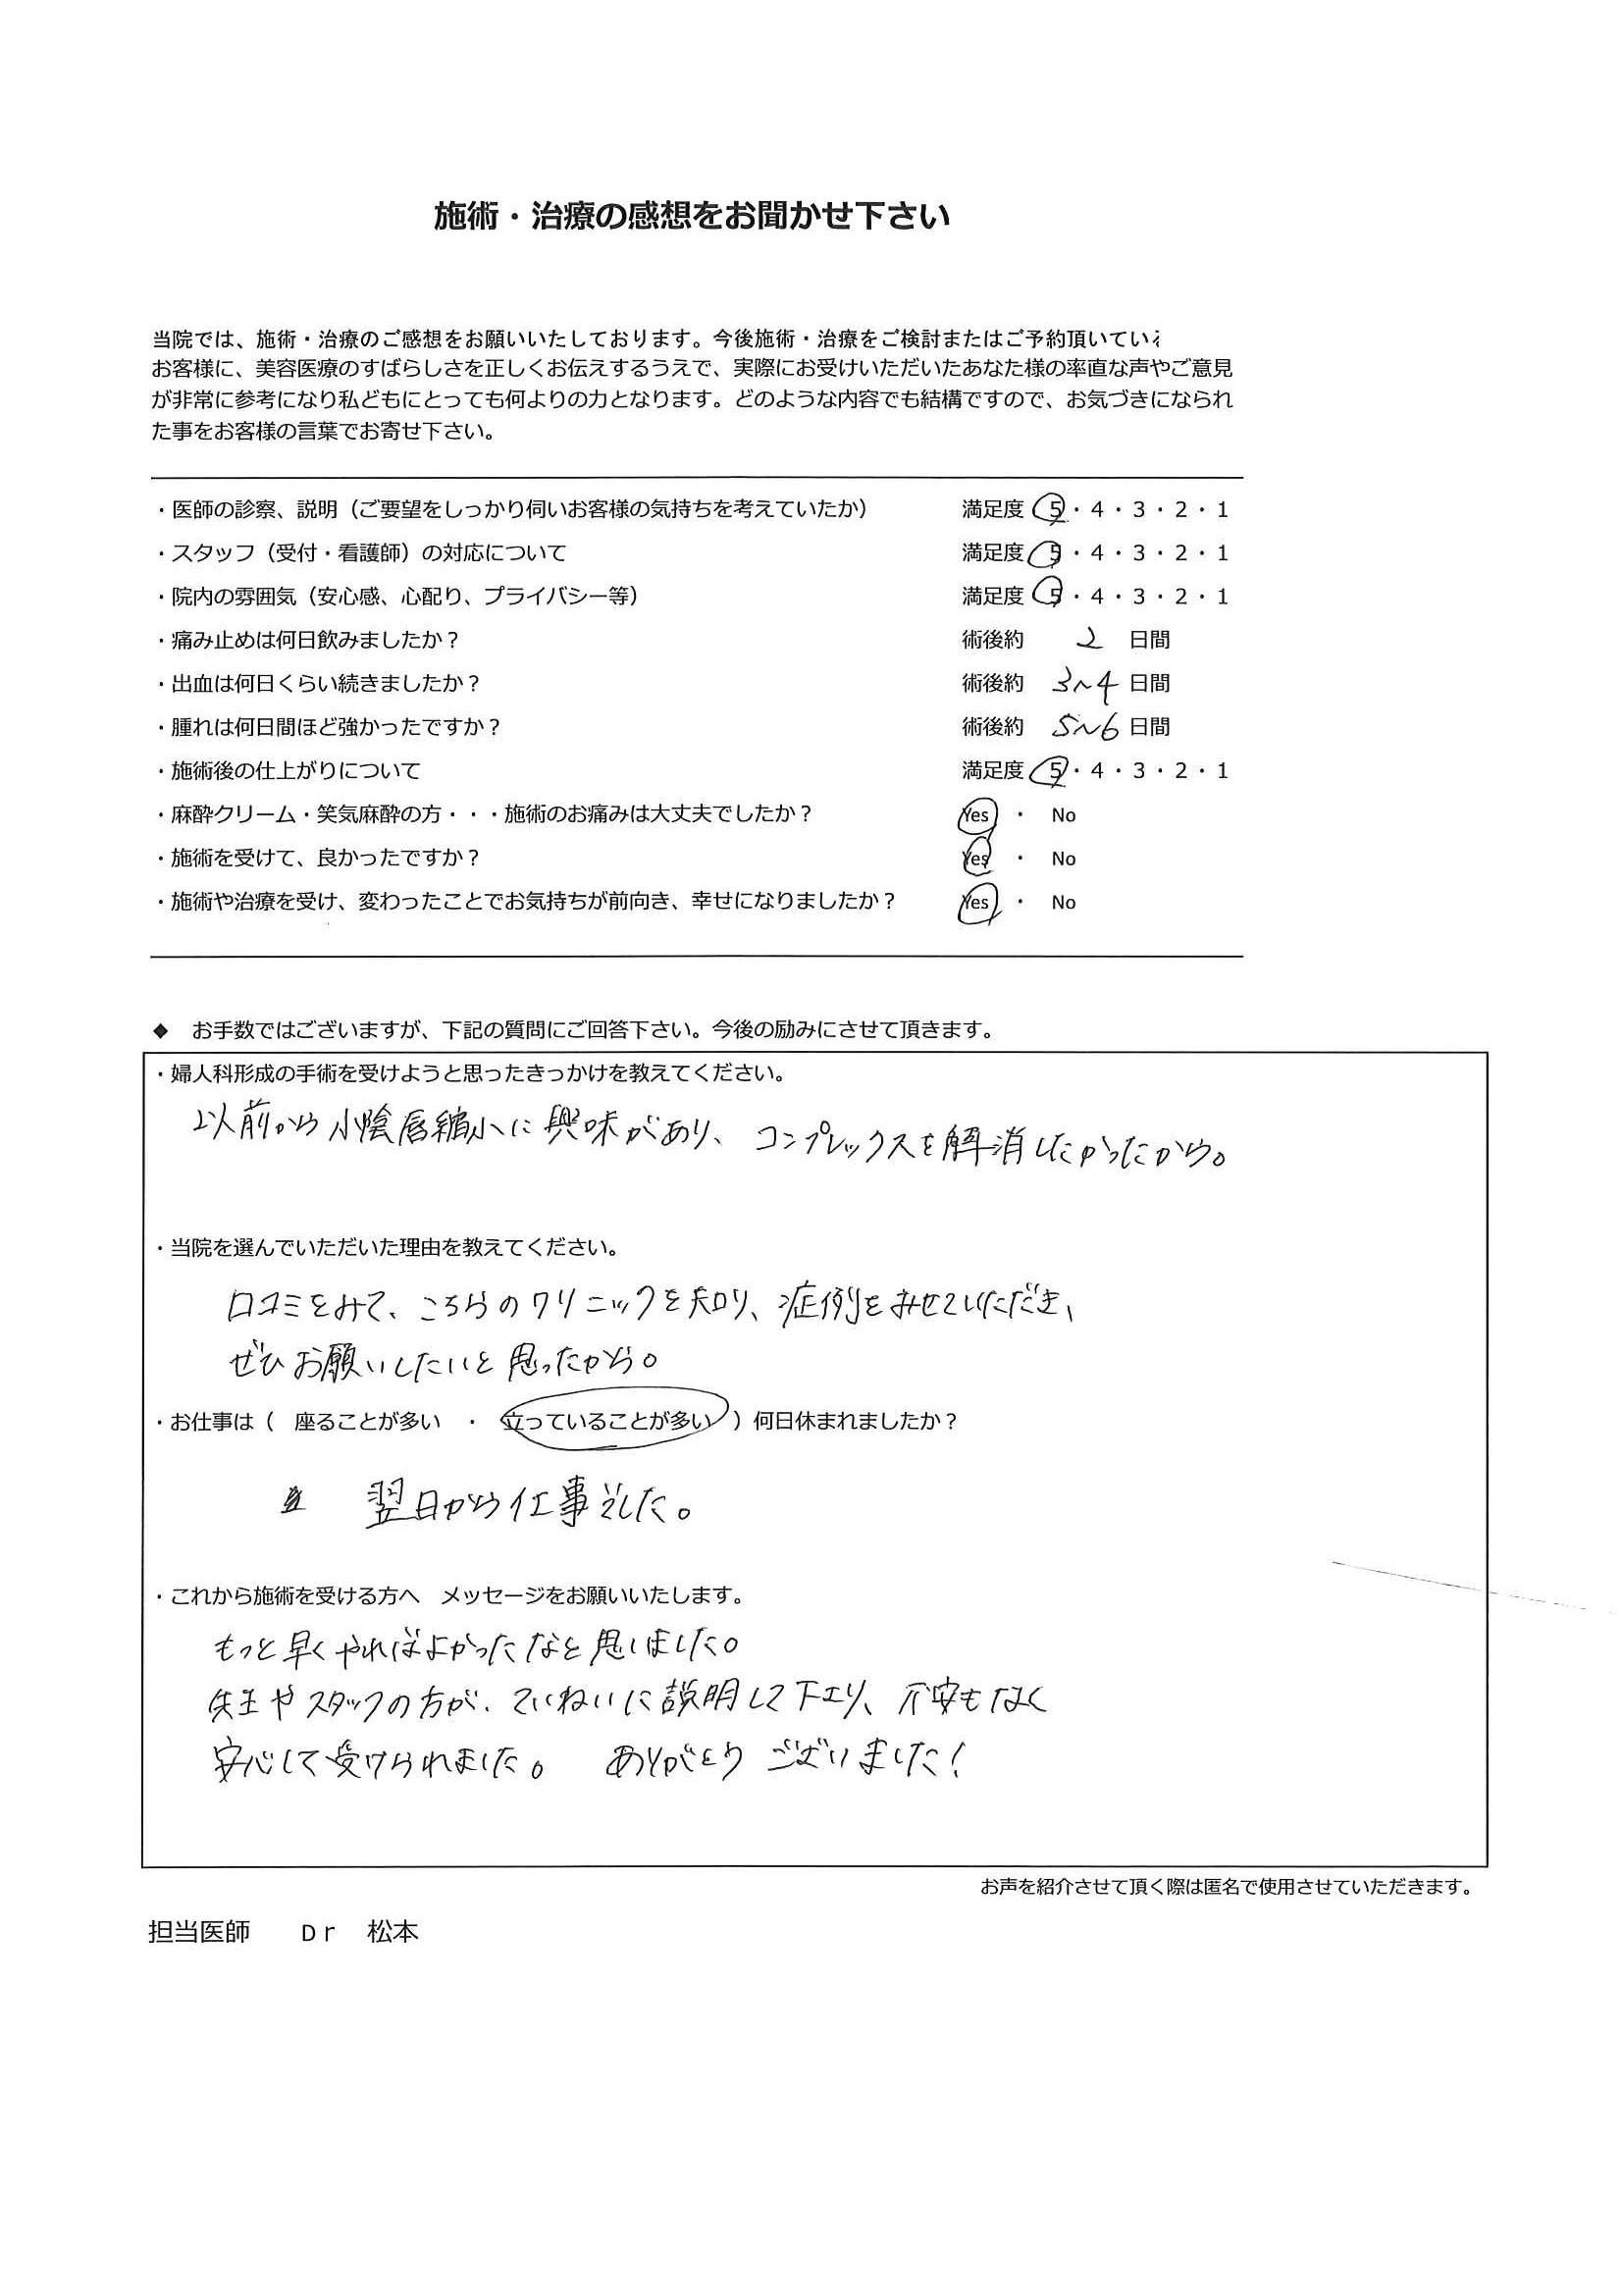 施術・治療の感想をお聞かせ下さい
当院では、施術・治療のご感想をお願いいたしております。今後施術・治療をご検討またはご予約頂いている
お客様に、美容医療のすばらしさを正しくお伝えするうえで、実際にお受けいただいたあなた様の率直な声やご意見
が非常に参考になり私どもにとっても何よりの力となります。どのような内容でも結構ですので、お気づきになられ
た事をお客様の言葉でお寄せ下さい。
・医師の診察、説明（ご要望をしっかり伺いお客様の気持ちを考えていたか） 満足度 5・4・3・2・1
・スタッフ（受付・看護師）の対応について 満足度 5・4・3・2・1
・院内の雰囲気（安心感、心配り、プライバシー等） 満足度 5・4・3・2・1
・痛み止めは何日飲みましたか？ 術後約 2 日間
・出血は何日くらい続きましたか？ 術後約 3〜4 日間
・腫れは何日間ほど強かったですか？ 術後約 5〜6 日間
・施術後の仕上がりについて 満足度 5・4・3・2・1
・麻酔クリーム・笑気麻酔の方・・・施術のお痛みは大丈夫でしたか？ Yes ・ No
・施術を受けて、良かったですか？ Yes ・ No
・施術や治療を受け、変わったことでお気持ちが前向き、幸せになりましたか？ Yes ・ No
◆ お手数ではございますが、下記の質問にご回答下さい。今後の励みにさせて頂きます。
・婦人科形成の手術を受けようと思ったきっかけを教えてください。
以前から小陰唇縮小に興味があり、コンプレックスを解消したかったから。
・当院を選んでいただいた理由を教えてください。
口コミをみて、こちらのクリニックを知り、症例をみせていただき、
ぜひお願いしたいと思ったから。
・お仕事は（ 座ることが多い ・ 立っていることが多い ）何日休まれましたか？
翌日から仕事をした。
・これから施術を受ける方へ メッセージをお願いいたします。
もっと早くやればよかったなと思いました。
先生やスタッフの方が、ていねいに説明して下さり、不安もなく
安心して受けられました。 ありがとうございました！
お声を紹介させて頂く際は匿名で使用させていただきます。
担当医師 Dr 松本